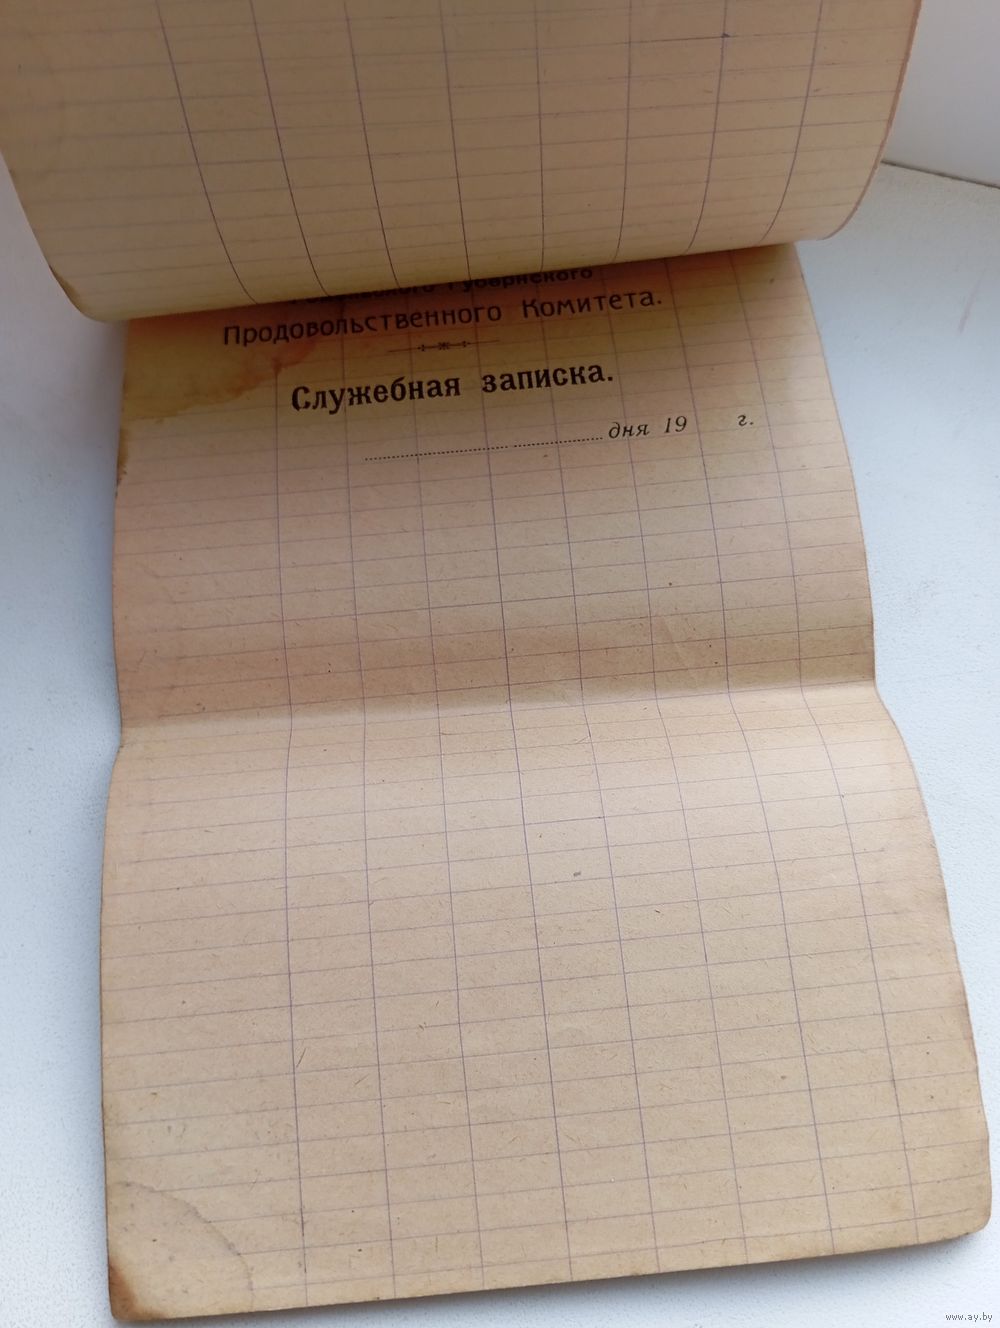 Губернского
Продовольственного Комитета.
Служебная записка.
дня 19 г.
www.ay.by